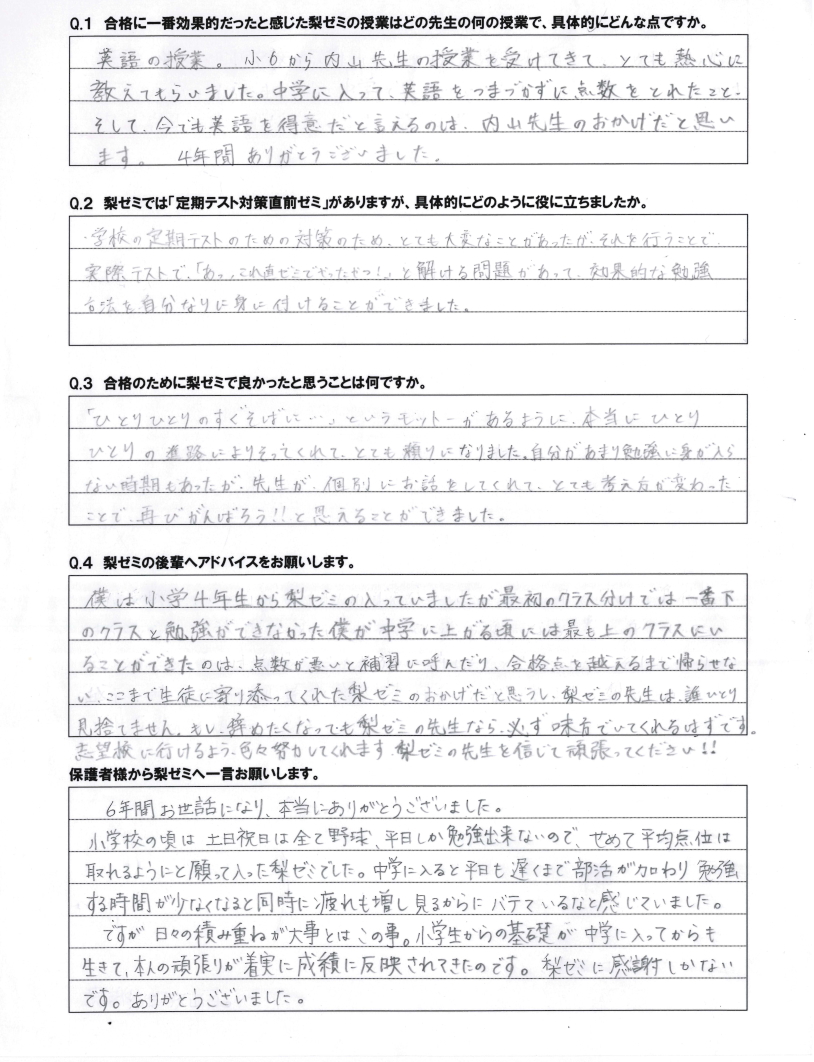 Q.1 合格に一番効果的だったと感じた梨ゼミの授業はどの先生の何の授業で、具体的にどんな点ですか。
英語の授業。小6から内山先生の授業を受けてきて、とても熱心に
教えてもらいました。中学に入って、英語をつまづかずに点数をとれたこと、
そして、今でも英語を得意だと言えるのは、内山先生のおかげだと思い
ます。 4年間ありがとうございました。
Q.2 梨ゼミでは「定期テスト対策直前ゼミ」がありますが、具体的にどのように役に立ちましたか。
・学校の定期テストのための対策のため、とても大変なことがあったが、それを行うことで、
実際テストで、「あっ、これ直ゼミでやったやつ!」と解ける問題があって、効果的な勉強
方法を自分なりに身に付けることができました。
Q.3 合格のために梨ゼミで良かったと思うことは何ですか。
「ひとりひとりのすぐそばに…」というモットーがあるように、本当にひとり
ひとりの進路によりそってくれて、とても頼りになりました。自分があまり勉強に身が入ら
ない時期もあったが、先生が、個別にお話をしてくれて、とても考え方が変わった
ことで、再びがんばろう!!と思えることができました。
Q.4 梨ゼミの後輩へアドバイスをお願いします。
僕は小学4年生から梨ゼミの入っていましたが最初のクラス分けでは一番下
のクラスと勉強ができなかった僕が中学に上がる頃には最も上のクラスにい
ることができたのは、点数が悪いと補習に呼んだり、合格点を越えるまで帰らせな
い、ここまで生徒に寄り添ってくれた梨ゼミのおかげだと思うし、梨ゼミの先生は、誰ひとり
見捨てません。もし、辞めたくなっても梨ゼミの先生なら、必ず味方でいてくれるはずです。
志望校に行けるよう、色々努力してくれます、梨ゼミの先生を信じて頑張ってください!!
保護者様から梨ゼミへ一言お願いします。
6年間お世話になり、本当にありがとうございました。
小学校の頃は土日祝日は全て野球、平日しか勉強出来ないので、せめて平均点位は
取れるようにと願って入った梨ゼミでした。中学に入ると平日も遅くまで部活が加わり勉強
する時間が少なくなると同時に疲れも増し見るからにバテているなと感じていました。
ですが日々の積み重ねが大事とはこの事。小学生からの基礎が中学に入ってからも
生きて、本人の頑張りが着実に成績に反映されてきたのです。梨ゼミに感謝しかない
です。ありがとうございました。